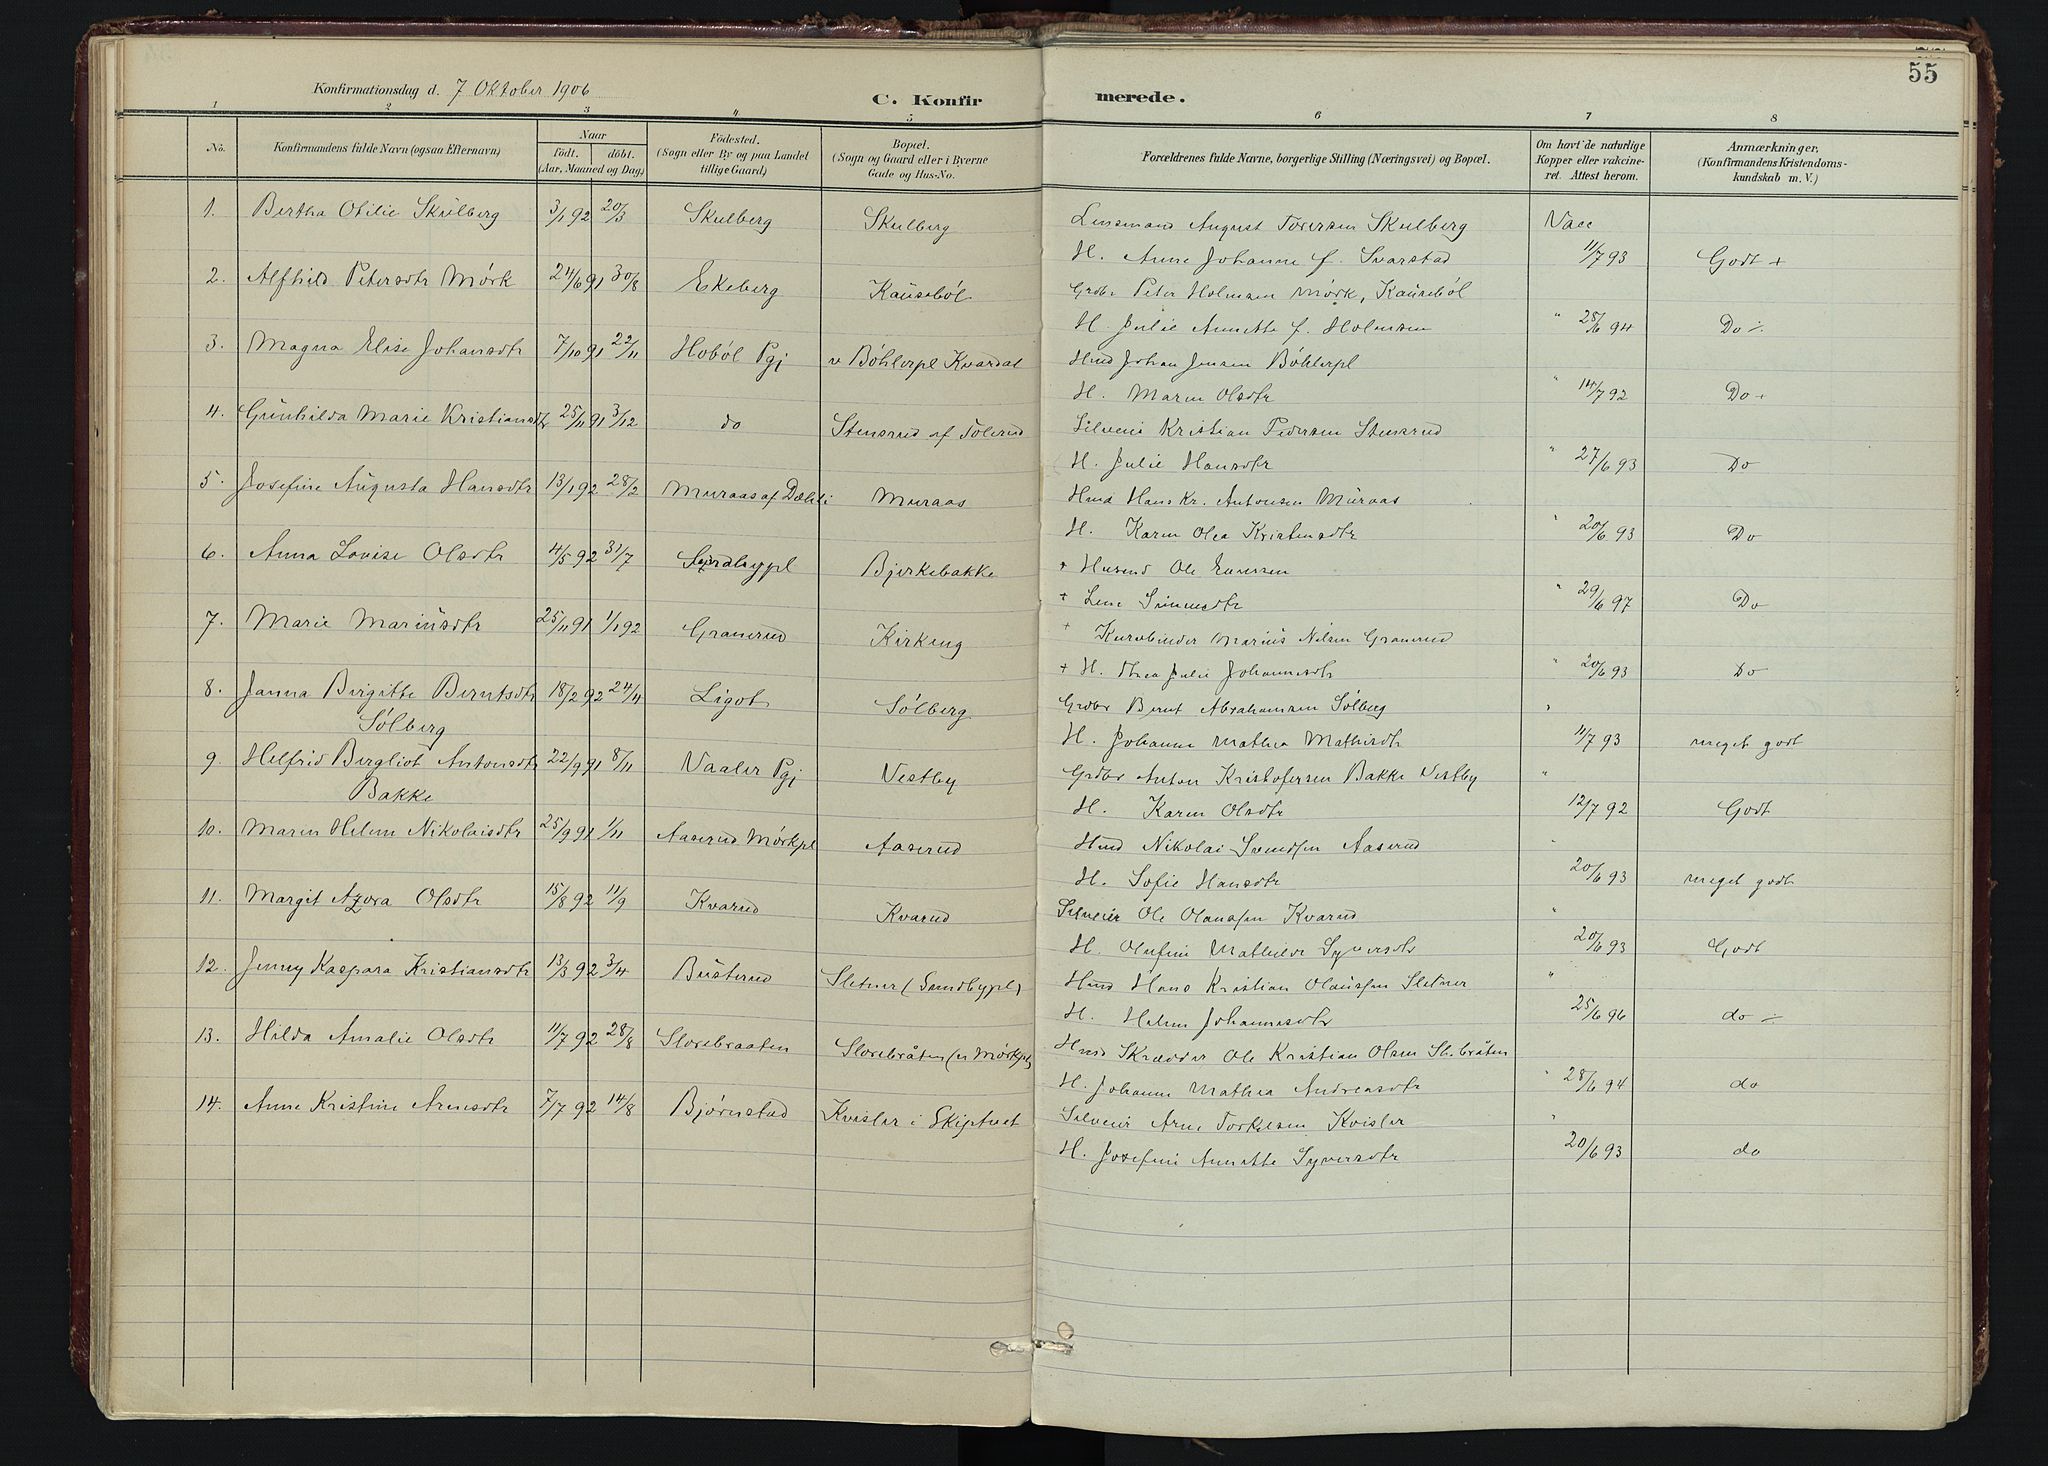 55
Konfirmationsdag d. 7 Oktober 1906
C. Konfir merede.
1 2 3 4 5 6 7 8
No.
Konfirmandens fulde Navn (ogsaa Efternavn)
Naar
født. døbt.
(Aar, Maaned og Dag)
Fødested.
(Sogn eller By og paa Landet
tillige Gaard)
Bopæl.
(Sogn og Gaard eller i Byerne
Gade og Hus-No.
Forældrenes fulde Navne, borgerlige Stilling (Næringsvei) og Bopæl.
Om havt de naturlige
Kopper eller vakcine-
ret. Attest herom.
Anmærkninger,
(Konfirmandens Kristendoms-
kundskab m. V.)
1. Bertha Otilie Skulberg 3/1 92 20/3 Skulberg Skulberg Lensmand August Toversen Skulberg Vacc
H. Anne Johanne f. Svarstad 11/7 93 Godt +
2. Alfhild Petersdtr Mørk 24/6 91 30/8 Ekeberg Kausebøl Grdbr Peter Holmsen Mørk, Kausebøl
H. Julie Annette f. Holmsen " 28/6 94 Do ÷
3. Magna Elise Johansdtr 7/10 91 22/11 Hobøl Pgj v Bøhlerpl Kvardal Hmd Johan Jensen Bøhlerpl
H. Maren Olsdtr " 14/7 92 Do +
4. Gunhilda Marie Kristiansdtr 25/11 91 3/12 do Stensrud af Tolerud Selveier Kristian Pedersen Stensrud
H. Julie Hansdtr " 27/6 93 Do
5. Josefine Augusta Hansdtr 13/1 92 28/2 Muraas af Dæhli Muraas Hmd Hans Kr. Antonsen Muraas
H. Karen Olea Kristensdtr " 20/6 93 Do
6. Anna Lovise Olsdtr 4/5 92 31/7 Bjerkebakke + Husmd Ole Enersen
+ Lene Simensdtr " 29/6 97 Do
7. Marie Mariusdtr 25/11 91 1/1 92 Granerud Kirkeng + Kurvbinder Marius Nilsen Granerud
+ H. Thea Julie Johannesdtr " 20/6 93 Do
8. Janna Birgitte Berntsdtr 18/2 92 24/4 Ligot Sølberg Grdbr Bernt Abrahamsen Sølberg "
Sølberg
H. Johanne Mathea Mathisdtr 11/7 93 meget godt
9 Helfrid Bergliot Antonsdtr 22/9 91 8/11 Vaaler Pgj Vestby Grdbr Anton Kristofersen Bakke Vestby "
Bakke
H. Karen Olsdtr 12/7 92 Godt
10. Maren Helene Nikolaisdtr 25/9 91 1/11 Aaserud Mørkpl Aaserud Hmd Nikolai Svendsen Aaserud "
H. Sofie Hansdtr 20/6 93 meget godt
11. Margit Azora Olsdtr 15/8 92 11/9 Kvarud Kvarud Selveier Ole Olaussen Kvarud "
H. Olufine Mathilde Syversdtr 20/6 93 Godt
12. Jenny Kaspara Kristiansdtr 13/3 92 3/4 Busterud Sletner (Sundbypl) Hmd Hans Kristian Olaussen Sletner "
H. Helene Johannesdtr 25/6 96 do ÷
13. Hilda Amalie Olsdtr 11/7 92 28/8 Storebraaten Storebråten (u Mørkpl) Hmd Skrædder Ole Kristian Olsen St.bråten
H. Johanne Mathea Andreasdtr " 28/6 94 do
14. Anne Kristine Arnesdtr 7/7 92 14/8 Bjørnstad Kvisler i Skiptvet Selveier Arne Torkelsen Kvisler "
H. Josefine Annette Syversdtr 20/6 93 do